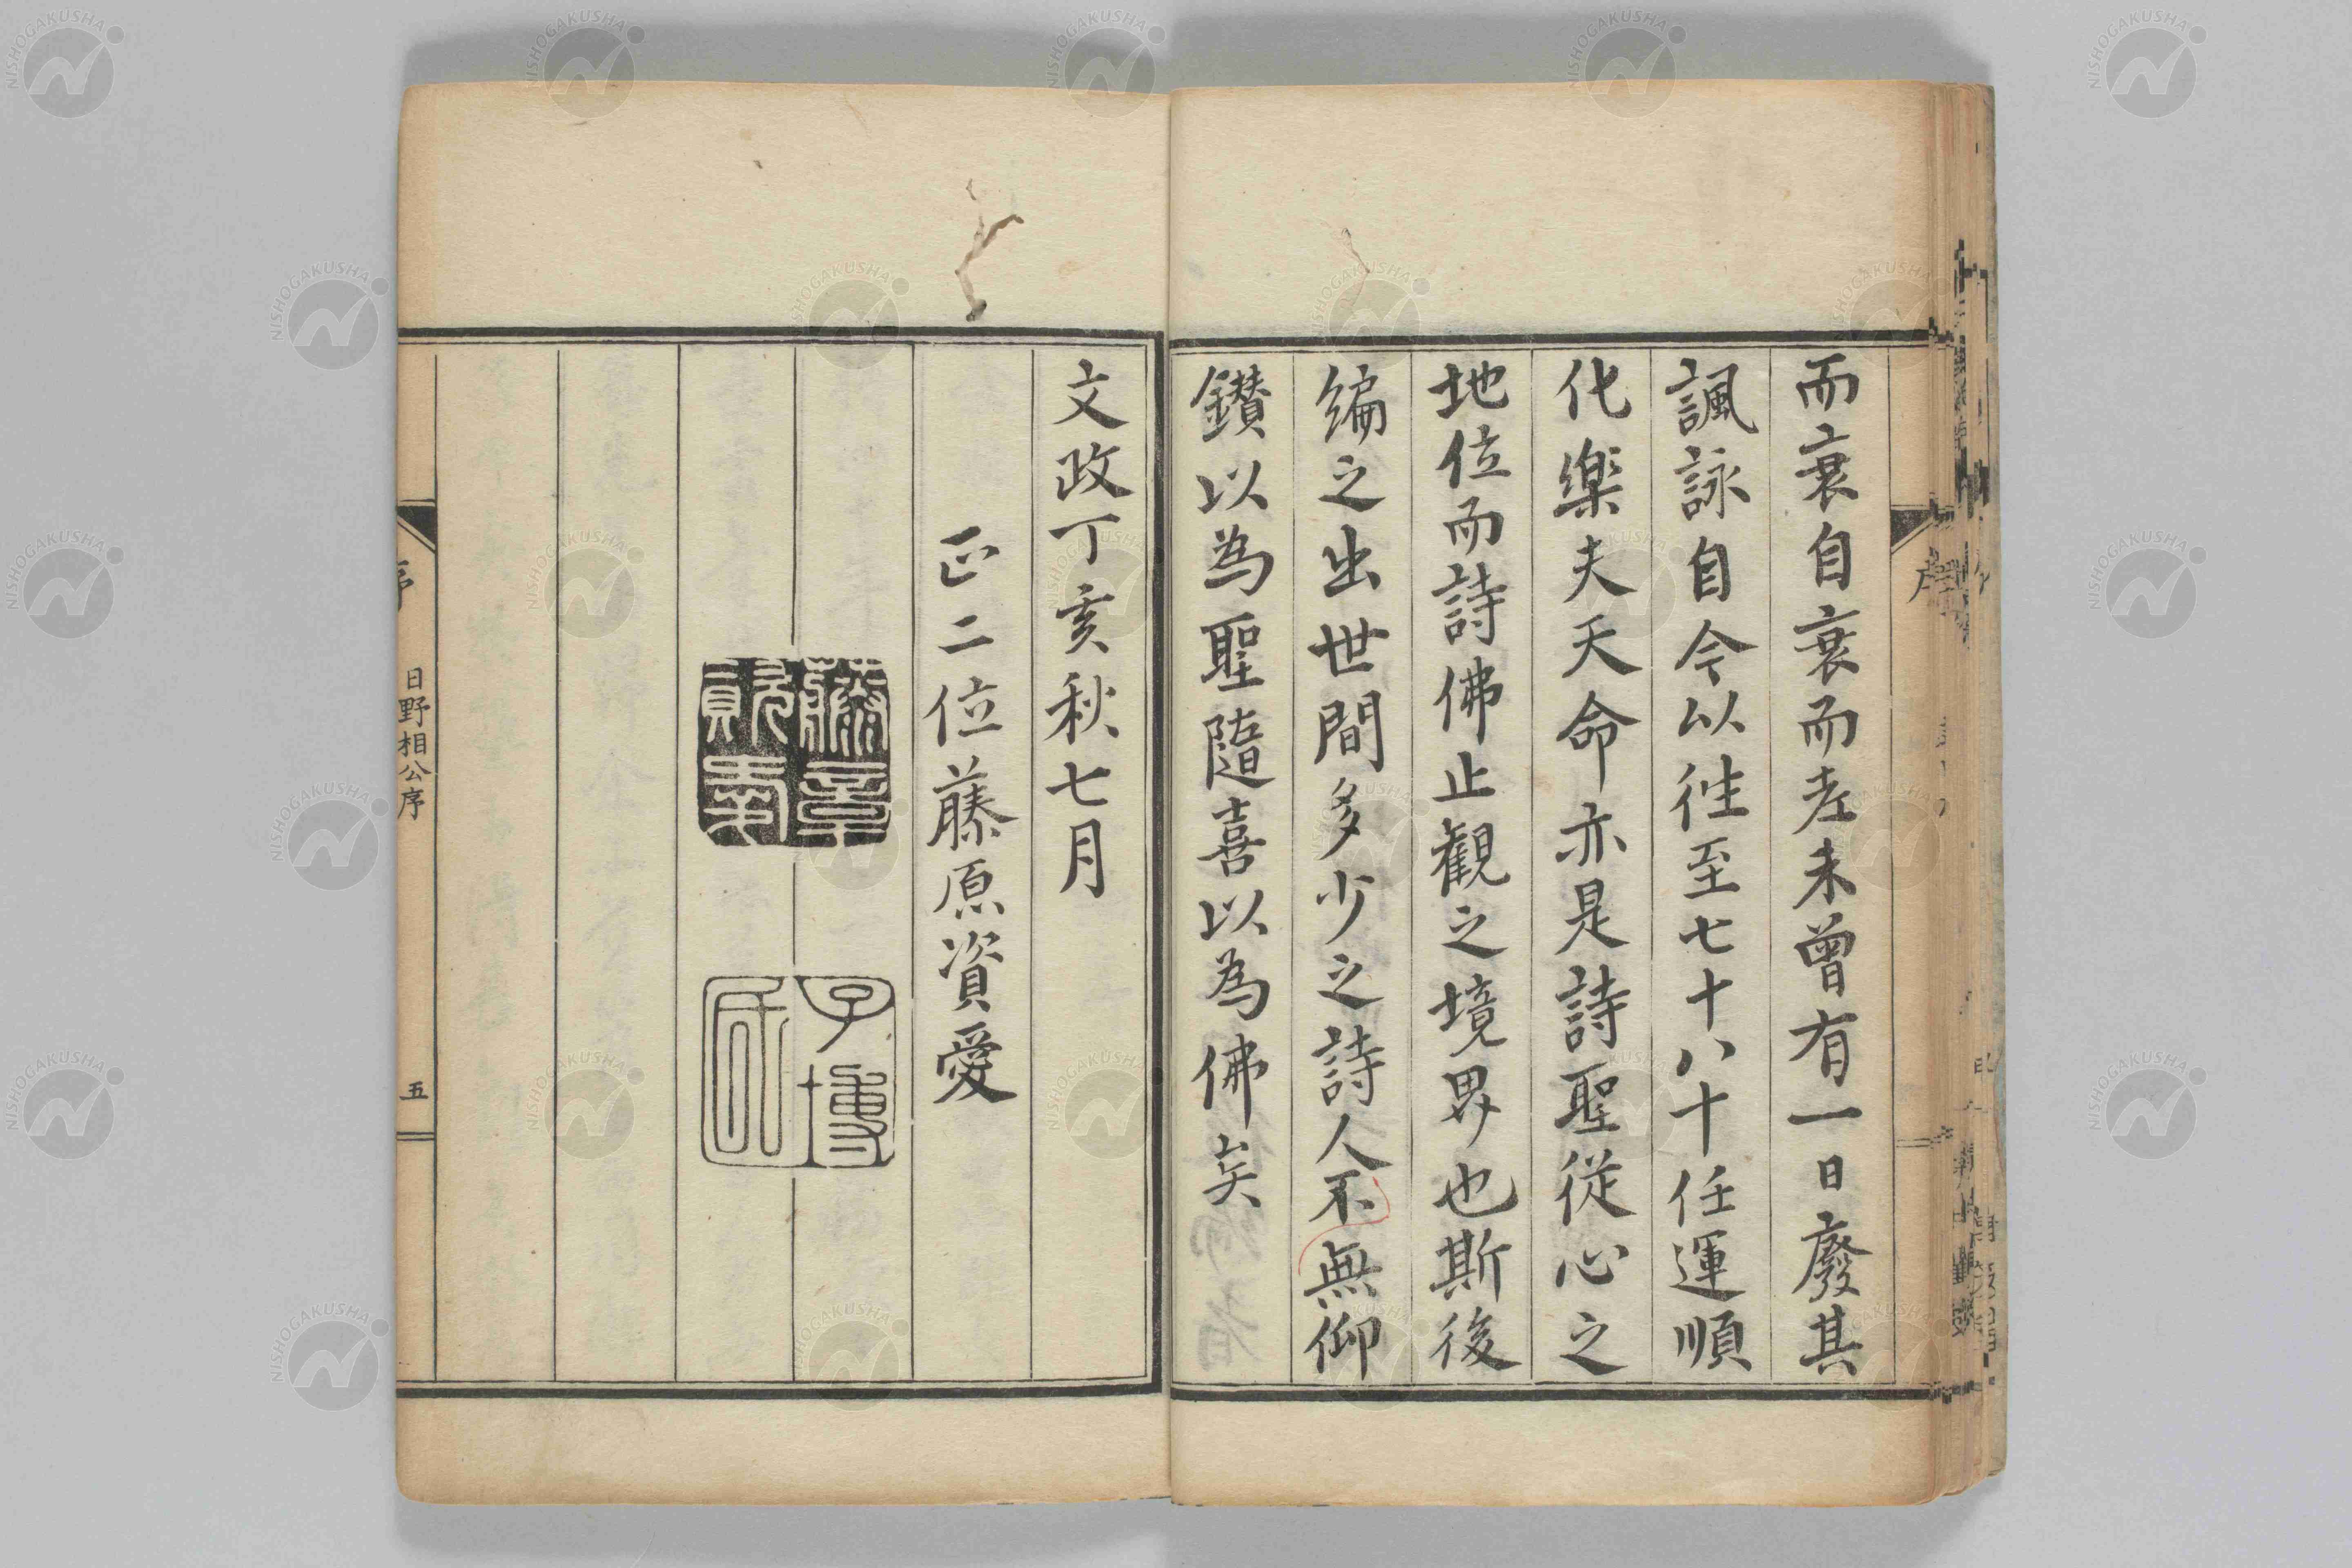 而衰自衰而老未曾有一日廢其
諷詠自今以徃至七十八十任運順
化樂夫天命亦是詩聖從心之
地位而詩佛止觀之境界也斯後
編之出世間多少之詩人不無仰
鑚以為聖隨喜以為佛矣
文政丁亥秋七月
正二位藤原資愛
子博
序
日野相公序
五
序
NISHOGAKUSHA